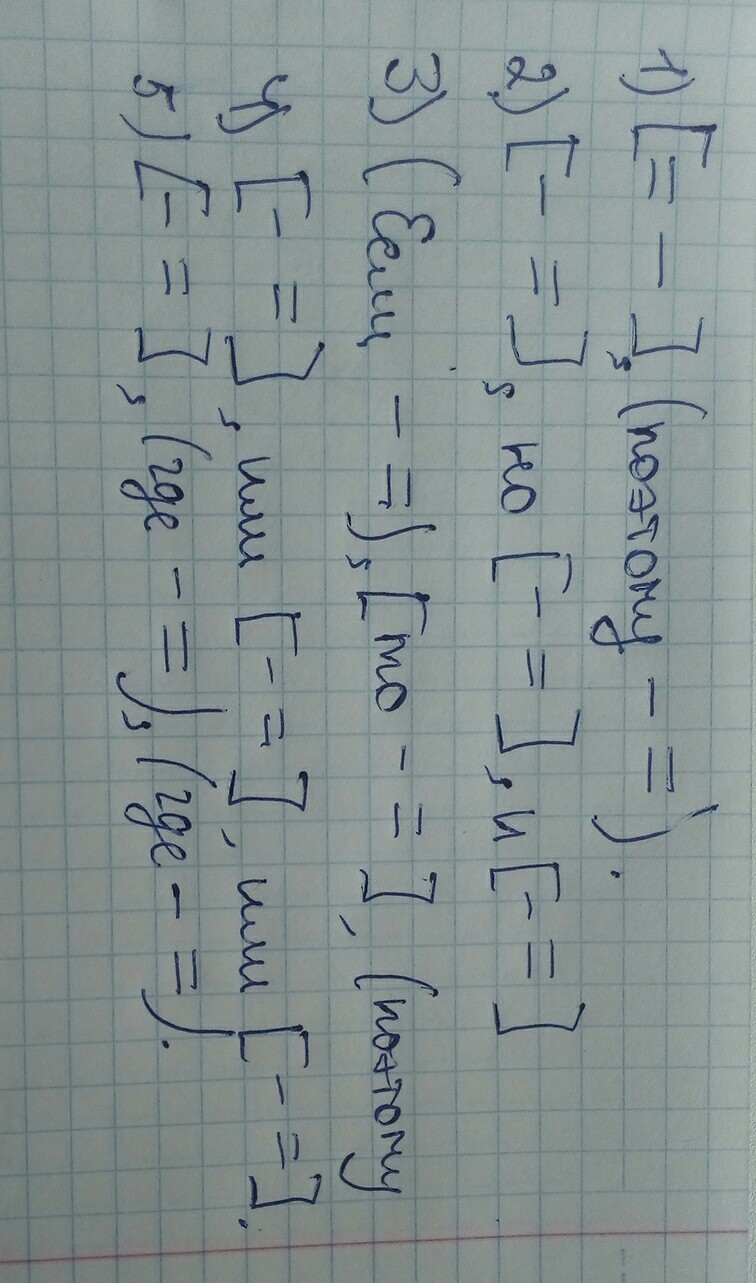 1) [= –], (поэтому – =).
2) [– =], но [– =], и [– =]
3) (Если – =), [то – =], (поэтому
4) [– =], или [– =], или [– =].
5) [– =], (где – =), (где – =).